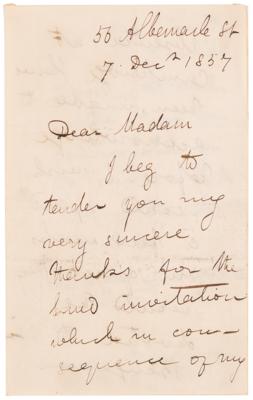 50 Albemarle St
7. Decr 1857
Dear Madam
I beg to
tender you my
very sincere
thanks for the
kind invitation
which in con-
sequence of my